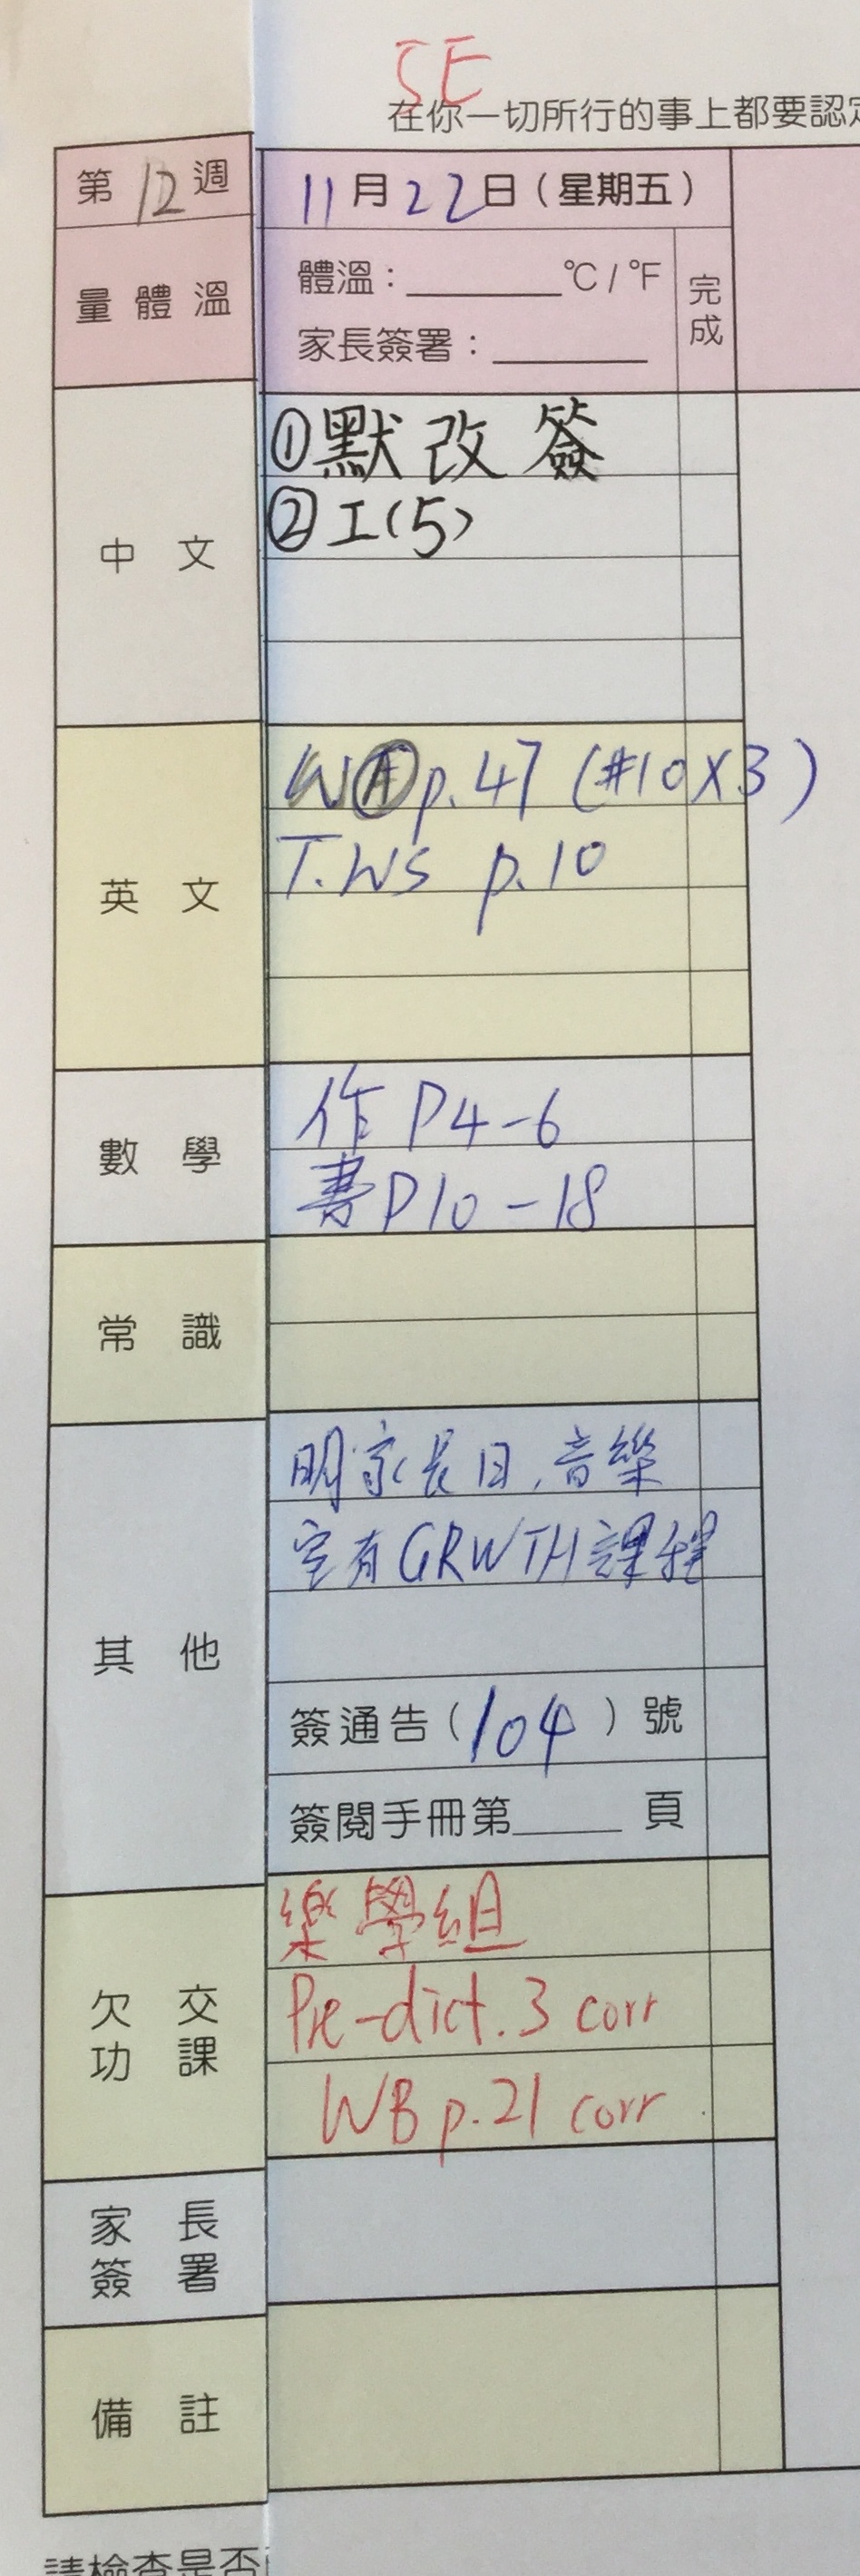 5E
在你一切所行的事上都要認定
第12週
11月22日（星期五）
量體溫
體溫：______°C / °F
家長簽署：______
完成
中文
①默改簽
②工(5)
英文
p.47 (#10X3)
T.WS p.10
數學
作P4-6
書P10-18
常識
其他
明家長日，音樂
室有GRWTH課程
簽通告（104）號
簽閱手冊第____頁
欠交功課
樂學組
Pre-dict.3 corr
WB p.21 corr
家長簽署
備註
請檢查是否